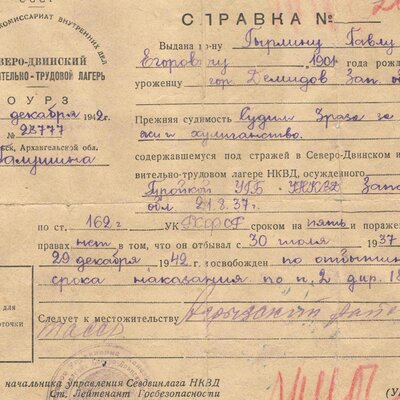 СССР
КОМИССАРИАТ ВНУТРЕННИХ ДЕЛ
СЕВЕРО-ДВИНСКИЙ
ИТЕЛЬНО-ТРУДОВОЙ ЛАГЕРЬ
ОУРЗ
декабря 1942 г.
№ 28777
ьск, Архангельской обл.
СПРАВКА №
Выдана гр-ну Гырлину Павлу
Егоровичу 1901 года рожд
уроженцу гор. Демидов Зап. о
Прежняя судимость Судим 3 раза за
и хулиганство.
содержавшемуся под стражей в Северо-Двинском и
вительно-трудовом лагере НКВД, осужденного
Тройкой УГБ - НКВД Запа
обл 21.8.37г.
по ст. 162 г УК РСФСР сроком на пять и пораже
правах нет в том, что он отбывал с 30 июля 1937
29 декабря 1942 г. освобожден по отбытии
срока наказания по п. 2 дир. 18
Следует к местожительству
для
рточки
начальника управления Севдвинлага НКВД
Ст. Лейтенант Госбезопасности